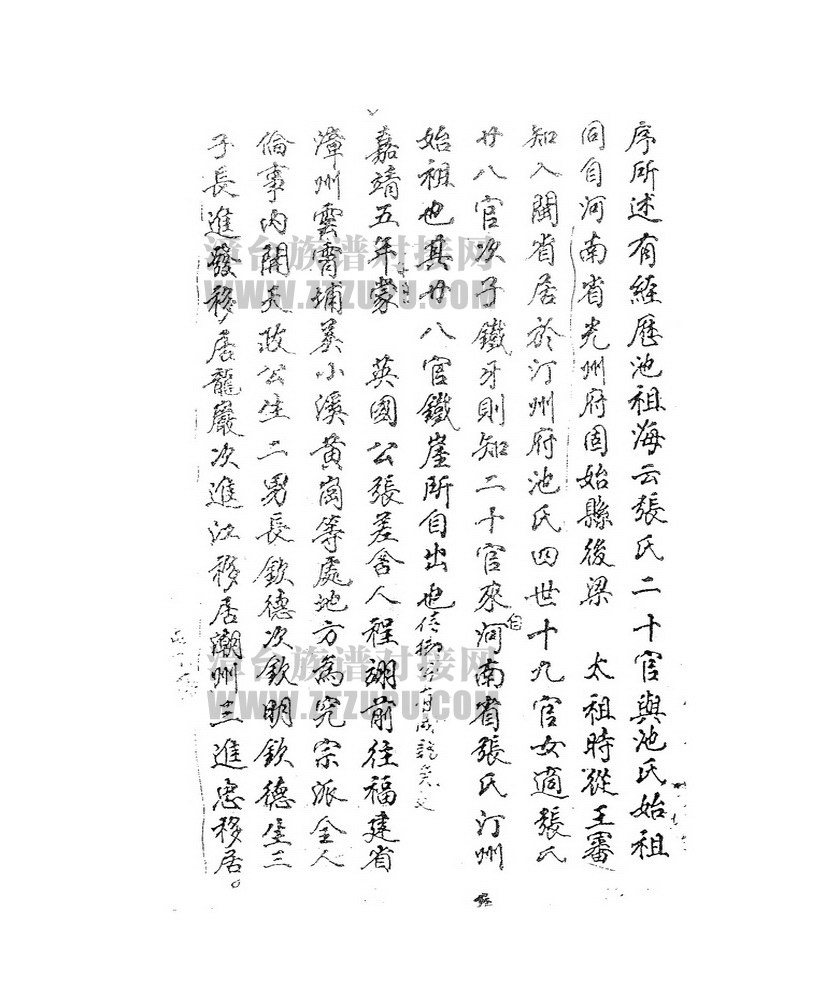 序所述有經歷池祖海云張氏二十官與池氏始祖
同自河南省光州府固始縣後梁 太祖時從王審
知入閩省居於汀州府池氏四世十九官女適張氏
廿八官次子鐵牙則知二十官來自河南省張氏汀州
始祖也其廿八官鐵崖所自出也
嘉靖五年蒙 英國公張差舍人程翊前往福建省
漳州雲霄埔美小溪黃崗等處地方為究宗派全人
倫事內開天政公生二男長欽德次欽明欽德生三
子長進發移居龍巖次進江移居潮州三進忠移居。
漳台族谱对接网
WWW.ZTZUPU.COM
漳台族谱对接网
WWW.ZTZUPU.COM